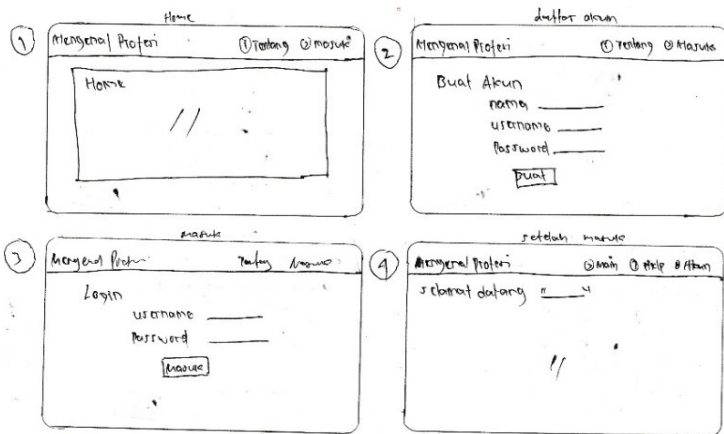 Home
1
Mengenal Profesi
① Tentang ② masuk
Home
daftar akun
2
Mengenal Profesi
① Tentang ② Masuk
Buat Akun
nama
username
Password
Buat
masuk
3
Mengenal Profesi
Tentang Masuk
Login
username
Password
Masuk
setelah masuk
4
Mengenal Profesi
Main Akun
selamat datang " "